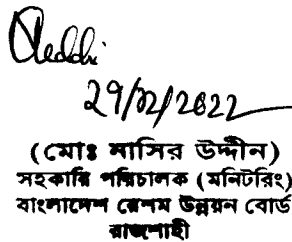 29/12/2022
(মোঃ নাসির উদ্দীন)
সহকারি পরিচালক (মনিটরিং)
বাংলাদেশ রেশম উন্নয়ন বোর্ড
রাজশাহী